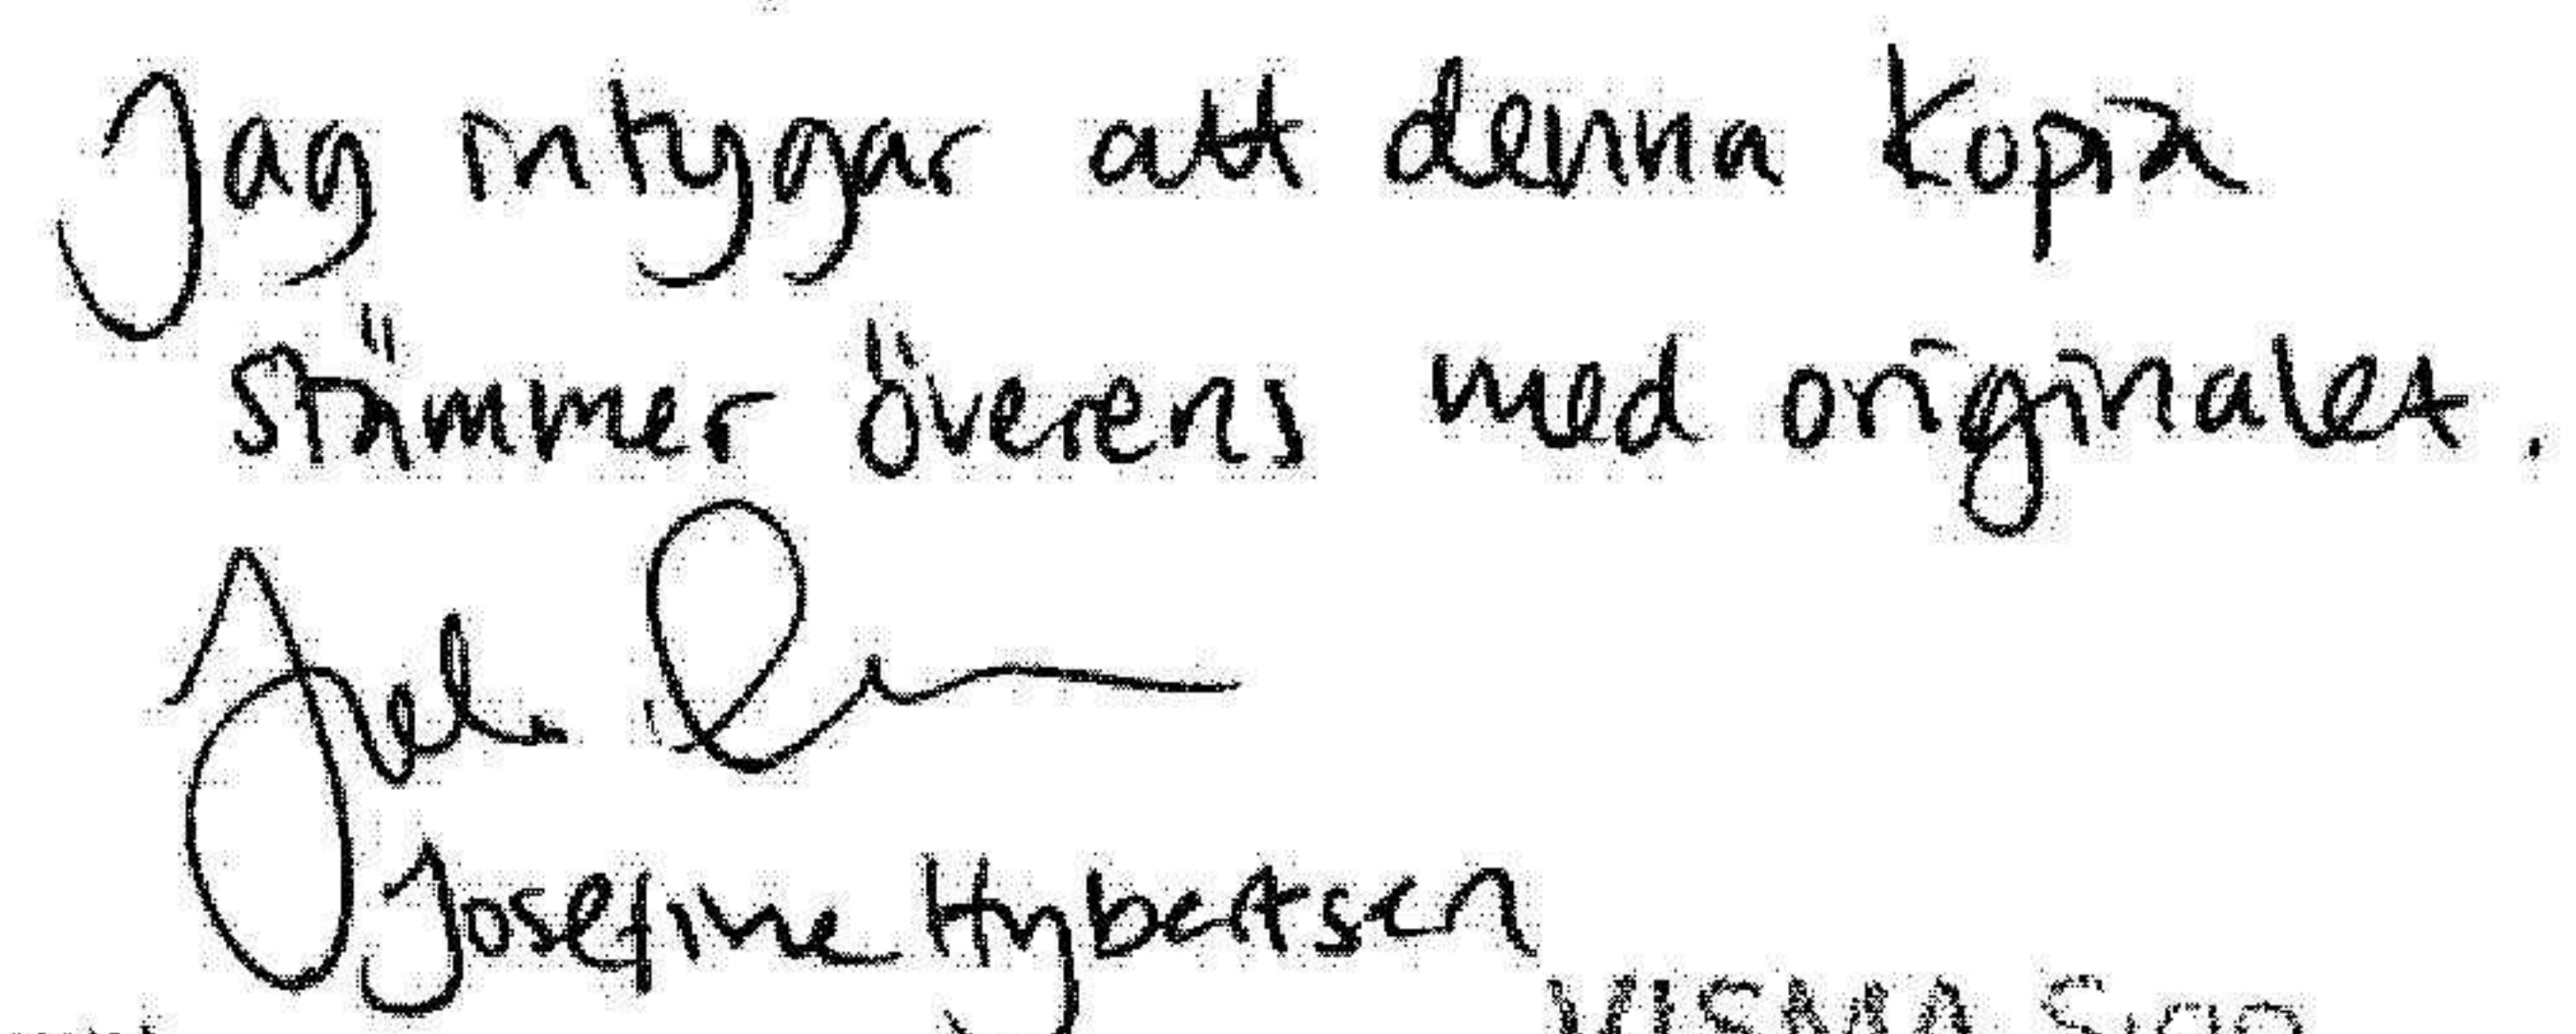 Jag intygar att denna kopia
stämmer överens med originalet.
Josefine Hybertsen
VISMA Sign